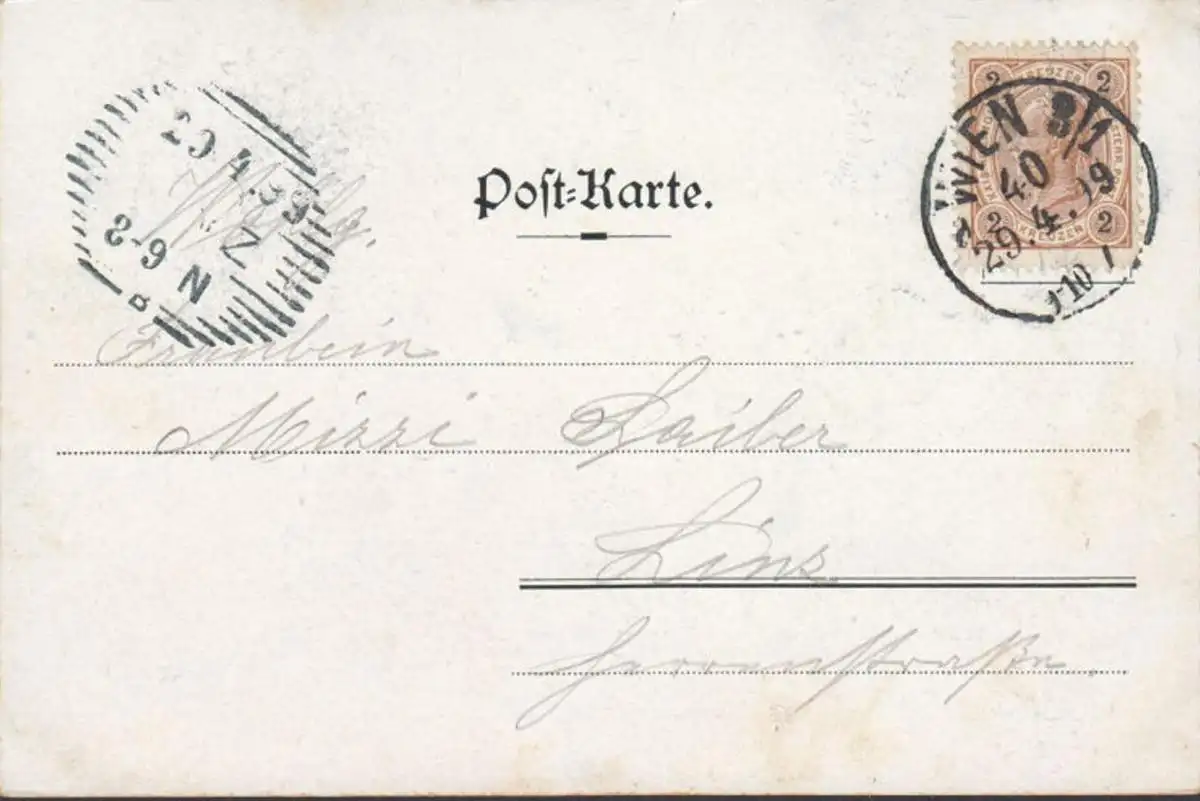 Post-Karte.
2 2
2 KREUZER 2
WIEN 3/1
40
29.4.99
29.4.99
8-9 N
Fräulein
Mizzi Laiber
Linz
Herrenstraße.